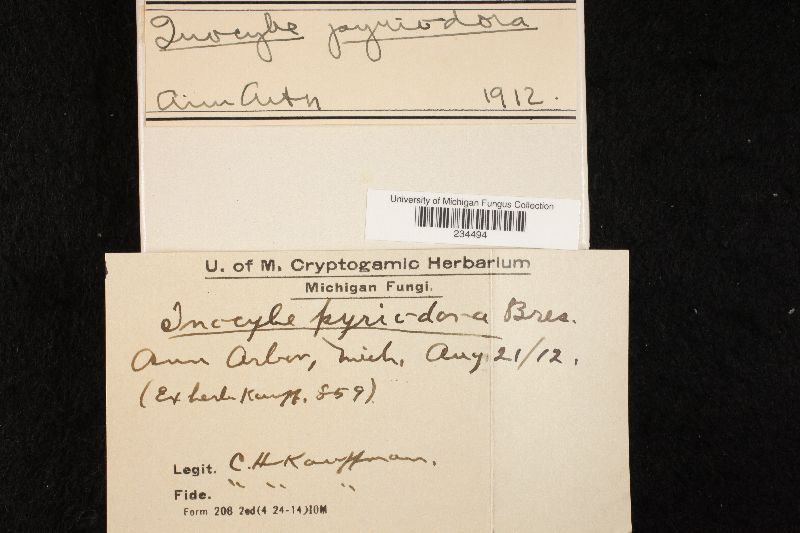 Inocybe pyriodora
Ann Arbor
1912.
University of Michigan Fungus Collection
234494
U. of M. Cryptogamic Herbarium
Michigan Fungi.
Inocybe pyriodora Bres.
Ann Arbor, Mich, Aug 21/12.
(Ex herb. Kauff. 859)
Legit. C. H. Kauffman.
Fide. " " "
Form 208 2ed(4 24-14)10M